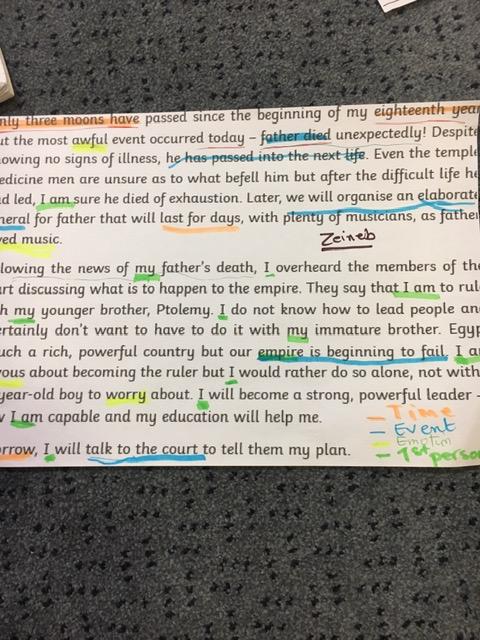 nly three moons have passed since the beginning of my eighteenth year
ut the most awful event occurred today – father died unexpectedly! Despite
owing no signs of illness, he has passed into the next life. Even the temple
edicine men are unsure as to what befell him but after the difficult life he
d led, I am sure he died of exhaustion. Later, we will organise an elaborate
neral for father that will last for days, with plenty of musicians, as father
ved music.
Zeineb
lowing the news of my father's death, I overheard the members of the
rt discussing what is to happen to the empire. They say that I am to rul
h my younger brother, Ptolemy. I do not know how to lead people an
ertainly don't want to have to do it with my immature brother. Egyp
uch a rich, powerful country but our empire is beginning to fail. I a
vous about becoming the ruler but I would rather do so alone, not with
year-old boy to worry about. I will become a strong, powerful leader –
v I am capable and my education will help me.
– Time
– Event
– Emotion
– 1st person
orrow, I will talk to the court to tell them my plan.